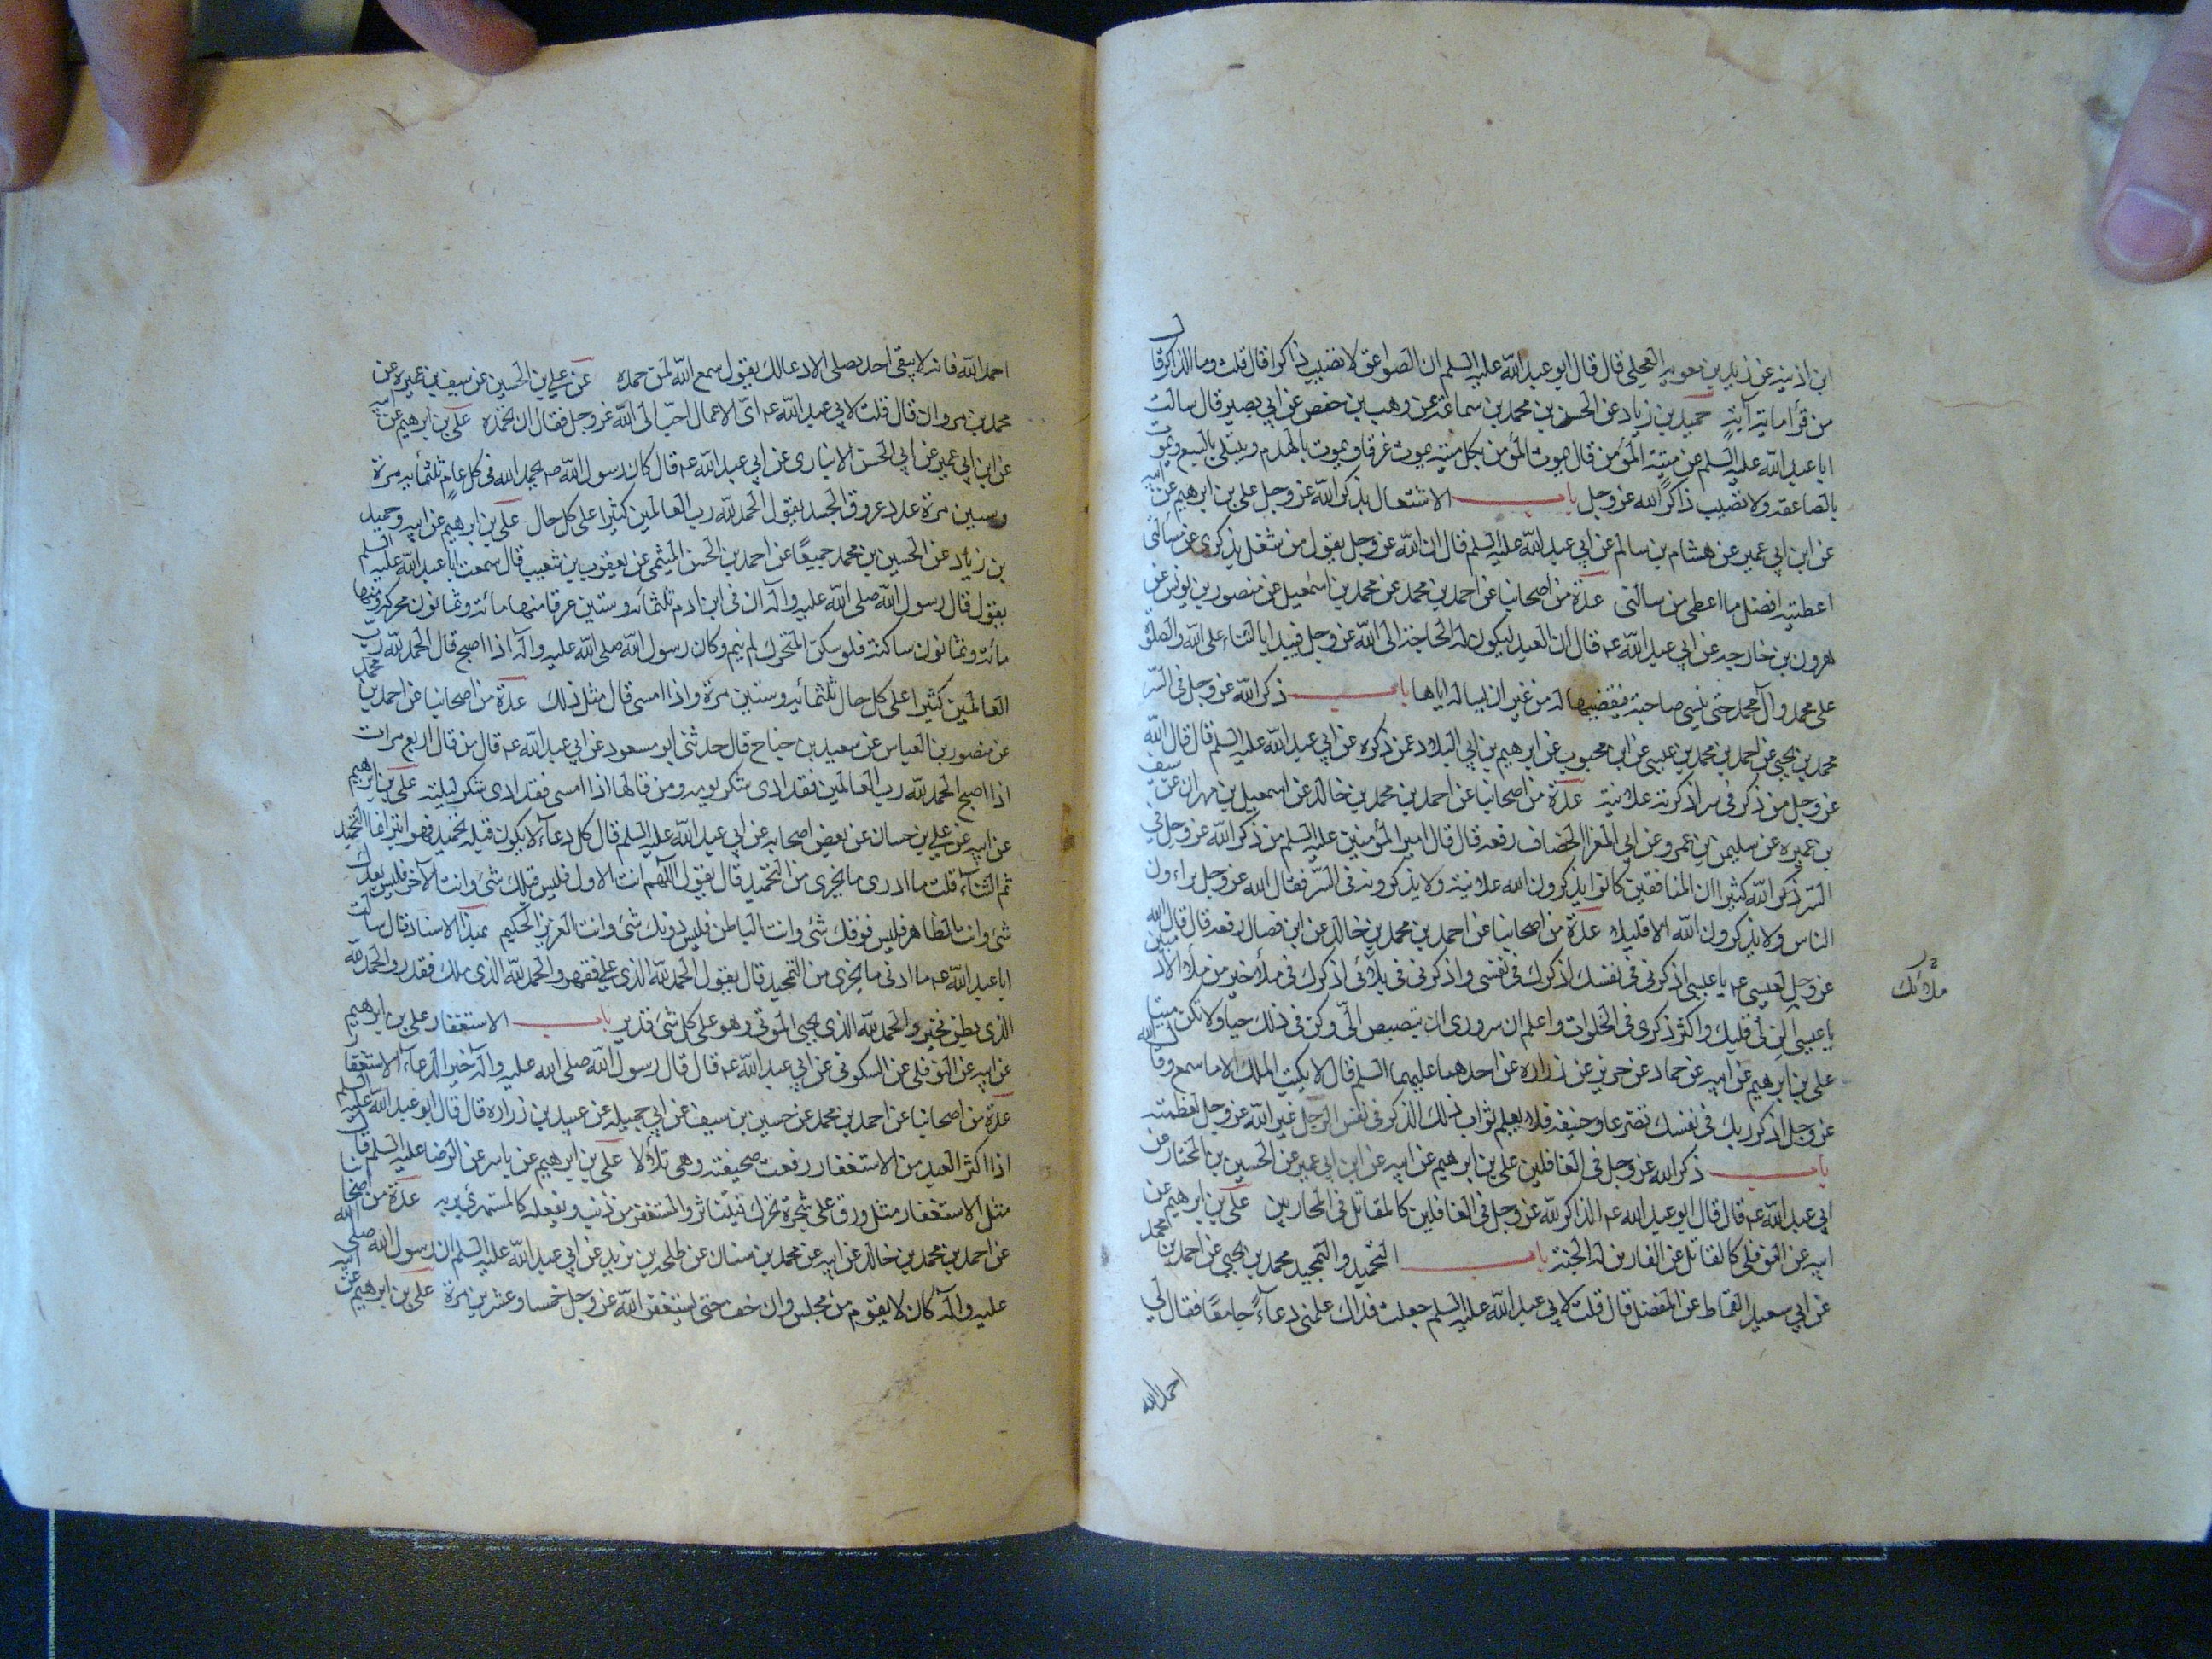 ابن اذينه عن بريد بن معويه العجلى قال قال ابو عبد الله عليه السلم ان الصواعق لا تصيب ذاكرا قال قلت وما الذاكر قال
من قرأ مائة آية حميد بن زياد عن الحسن بن محمد بن سماعة عن وهيب بن حفص عن ابي بصير قال سالت
ابا عبد الله عليه السلم عن ميتة المؤمن قال يموت المؤمن بكل ميتة يموت غرقا ويموت بالهدم ويبتلى بالسبع ويموت
بالصاعقة ولا تصيب ذاكر الله عز وجل باب الاشتغال بذكر الله عز وجل على بن ابرهيم عن ابيه
عن ابن ابي عمير عن هشام بن سالم عن ابي عبد الله عليه السلم قال ان الله عز وجل يقول من شغل بذكرى عن مسألتى
اعطيته افضل ما اعطى من سالنى عدة من اصحابنا عن احمد بن محمد عن محمد بن اسمعيل عن منصور بن يونس عن
هرون بن خارجه عن ابي عبد الله عه قال ان العبد ليكون له الحاجة الى الله عز وجل فيبدا بالثناء على الله والصلوة
على محمد وآل محمد حتى ينسى حاجته فيقضيها له من غير ان يساله اياها باب ذكر الله عز وجل فى السر
محمد بن يحيى عن احمد بن محمد بن عيسى عن ابن محبوب عن ابرهيم بن ابي البلاد عمن ذكره عن ابي عبد الله عليه السلم قال قال الله
عز وجل من ذكرنى سرا ذكرته علانية عدة من اصحابنا عن احمد بن محمد بن خالد عن اسمعيل بن مهران عن سيف
بن عميره عن سليمن بن عمرو عن ابي المغرا الخصاف رفعه قال قال امير المؤمنين عليه السلم من ذكر الله عز وجل فى
السر ذكر الله كثيرا ان المنافقين كانوا يذكرون الله علانية ولا يذكرونه فى السر فقال الله عز وجل يراءون
الناس ولا يذكرون الله الا قليلا عدة من اصحابنا عن احمد بن محمد بن خالد عن ابن فضال رفعه قال قال الله
عز وجل لعيسى عه يا عيسى اذكرنى فى نفسك اذكرك فى نفسى واذكرنى فى ملائى اذكرك فى ملأ خير من ملأ الادميين
ملائك
يا عيسى الن لى قلبك واكثر ذكرى فى الخلوات واعلم ان سرورى ان تبصبص الى وكن فى ذلك حيا ولا تكن ميتا
على بن ابرهيم عن ابيه عن حماد عن حريز عن زراره عن احدهما عليهما السلم قال لا يكتب الملك الا ما سمع وقال الله
عز وجل اذكر ربك فى نفسك تضرعا وخيفة فلا يعلم ثواب ذلك الذكر فى نفس الرجل غير الله عز وجل لعظمته
باب ذكر الله عز وجل فى الغافلين على بن ابرهيم عن ابيه عن ابن ابي عمير عن الحسين بن المختار عن
ابي عبد الله عه قال قال ابو عبد الله عه الذاكر لله عز وجل فى الغافلين كالمقاتل فى المحاربين على بن ابرهيم عن
ابيه عن النوفلى كالقاتل عن الفارين له الجنة باب التحميد والتمجيد محمد بن يحيى عن احمد بن محمد
عن ابي سعيد القماط عن المفضل قال قلت لابي عبد الله عليه السلم جعلت فداك علمنى دعاءً جامعًا فقال لى
احمد الله
احمد الله فانه لا يبقى احد يصلى الا دعا لك يقول سمع الله لمن حمده عن على بن الحسين عن سيف بن عميره عن
محمد بن مروان قال قلت لابي عبد الله عه اى الاعمال احب الى الله عز وجل فقال ان تحمده على بن ابرهيم عن ابيه
عن ابن ابي عمير عن ابي الحسن الانبارى عن ابي عبد الله عه قال كان رسول الله صه يحمد الله فى كل عام ثلثمائه مرة
وستين مرة عدد عروق الجسد يقول الحمد لله رب العالمين كثيرا على كل حال على بن ابرهيم عن ابيه وحميد
بن زياد عن الحسين بن محمد جميعًا عن احمد بن الحسن الميثمى عن يعقوب بن شعيب قال سمعت ابا عبد الله عليه السلم
يقول قال رسول الله صلى الله عليه وآله ان فى ابن ادم ثلثمائه وستين عرقا منها مائه وثمانون متحركة ومنها
مائه وثمانون ساكنة فلو سكن المتحرك لم ينم وكان رسول الله صلى الله عليه وآله اذا اصبح قال الحمد لله رب
العالمين كثيرا على كل حال ثلثمائه وستين مرة واذا امسى قال مثل ذلك عدة من اصحابنا عن احمد بن محمد
عن منصور بن العباس عن سعيد بن جناح قال حدثنى ابو مسعود عن ابي عبد الله عه قال من قال اربع مرات
اذا اصبح الحمد لله رب العالمين فقد ادى شكر يومه ومن قالها اذا امسى فقد ادى شكر ليلته على بن ابرهيم
عن ابيه عن على بن حسان عن بعض اصحابه عن ابي عبد الله عليه السلم قال كل دعاء لا يكون قبله تحميد فهو ابتر انما التحميد
ثم الثناء قلت ما ادرى ما يجزى من التحميد قال يقول اللهم انت الاول فليس قبلك شئ وانت الآخر فليس بعدك
شئ وانت الظاهر فليس فوقك شئ وانت الباطن فليس دونك شئ وانت العزيز الحكيم بهذا الاسناد قال سالت
ابا عبد الله عه ما ادنى ما يجزى من التحميد قال يقول الحمد لله الذى علا فقهر والحمد لله الذى ملك فقدر والحمد لله
الذى بطن فخبر والحمد لله الذى يحيى الموتى وهو على كل شئ قدير باب الاستغفار على بن ابرهيم
عن ابيه عن النوفلى عن السكونى عن ابي عبد الله عه قال قال رسول الله صلى الله عليه وآله خير الدعاء الاستغفار
عدة من اصحابنا عن احمد بن محمد عن حسين بن سيف عن ابي جميله عن عبيد بن زراره قال قال ابو عبد الله عليه السلم
اذا اكثر العبد من الاستغفار رفعت صحيفته وهى تتلألا على بن ابرهيم عن ياسر عن الرضا عليه السلم قال
مثل الاستغفار مثل ورق على شجرة تحرك فيتناثر والمستغفر من ذنب ويفعله كالمستهزئ بربه عدة من اصحابنا
عن احمد بن محمد بن خالد عن ابيه عن محمد بن سنان عن طلحه بن زيد عن ابي عبد الله عليه السلم ان رسول الله صلى الله
عليه وآله كان لا يقوم من مجلس وان خف حتى يستغفر الله عز وجل خمسا وعشرين مرة على بن ابرهيم عن ابيه